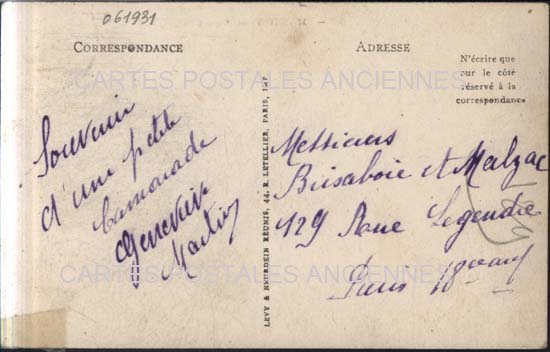 061931
CORRESPONDANCE
ADRESSE
N'écrire que
sur le côté
réservé à la
correspondance
CARTES POSTALES ANCIENNES
Souvenir
d'une petite
Camarade
Genevieve
Martin
LEVY & NEURDEIN RÉUNIS, 44, R. LETELLIER, PARIS, 15e
Messieurs
Brisaboie et Malzac
129 Rue Legendre
Paris
CARTES POSTALES ANCIENNES